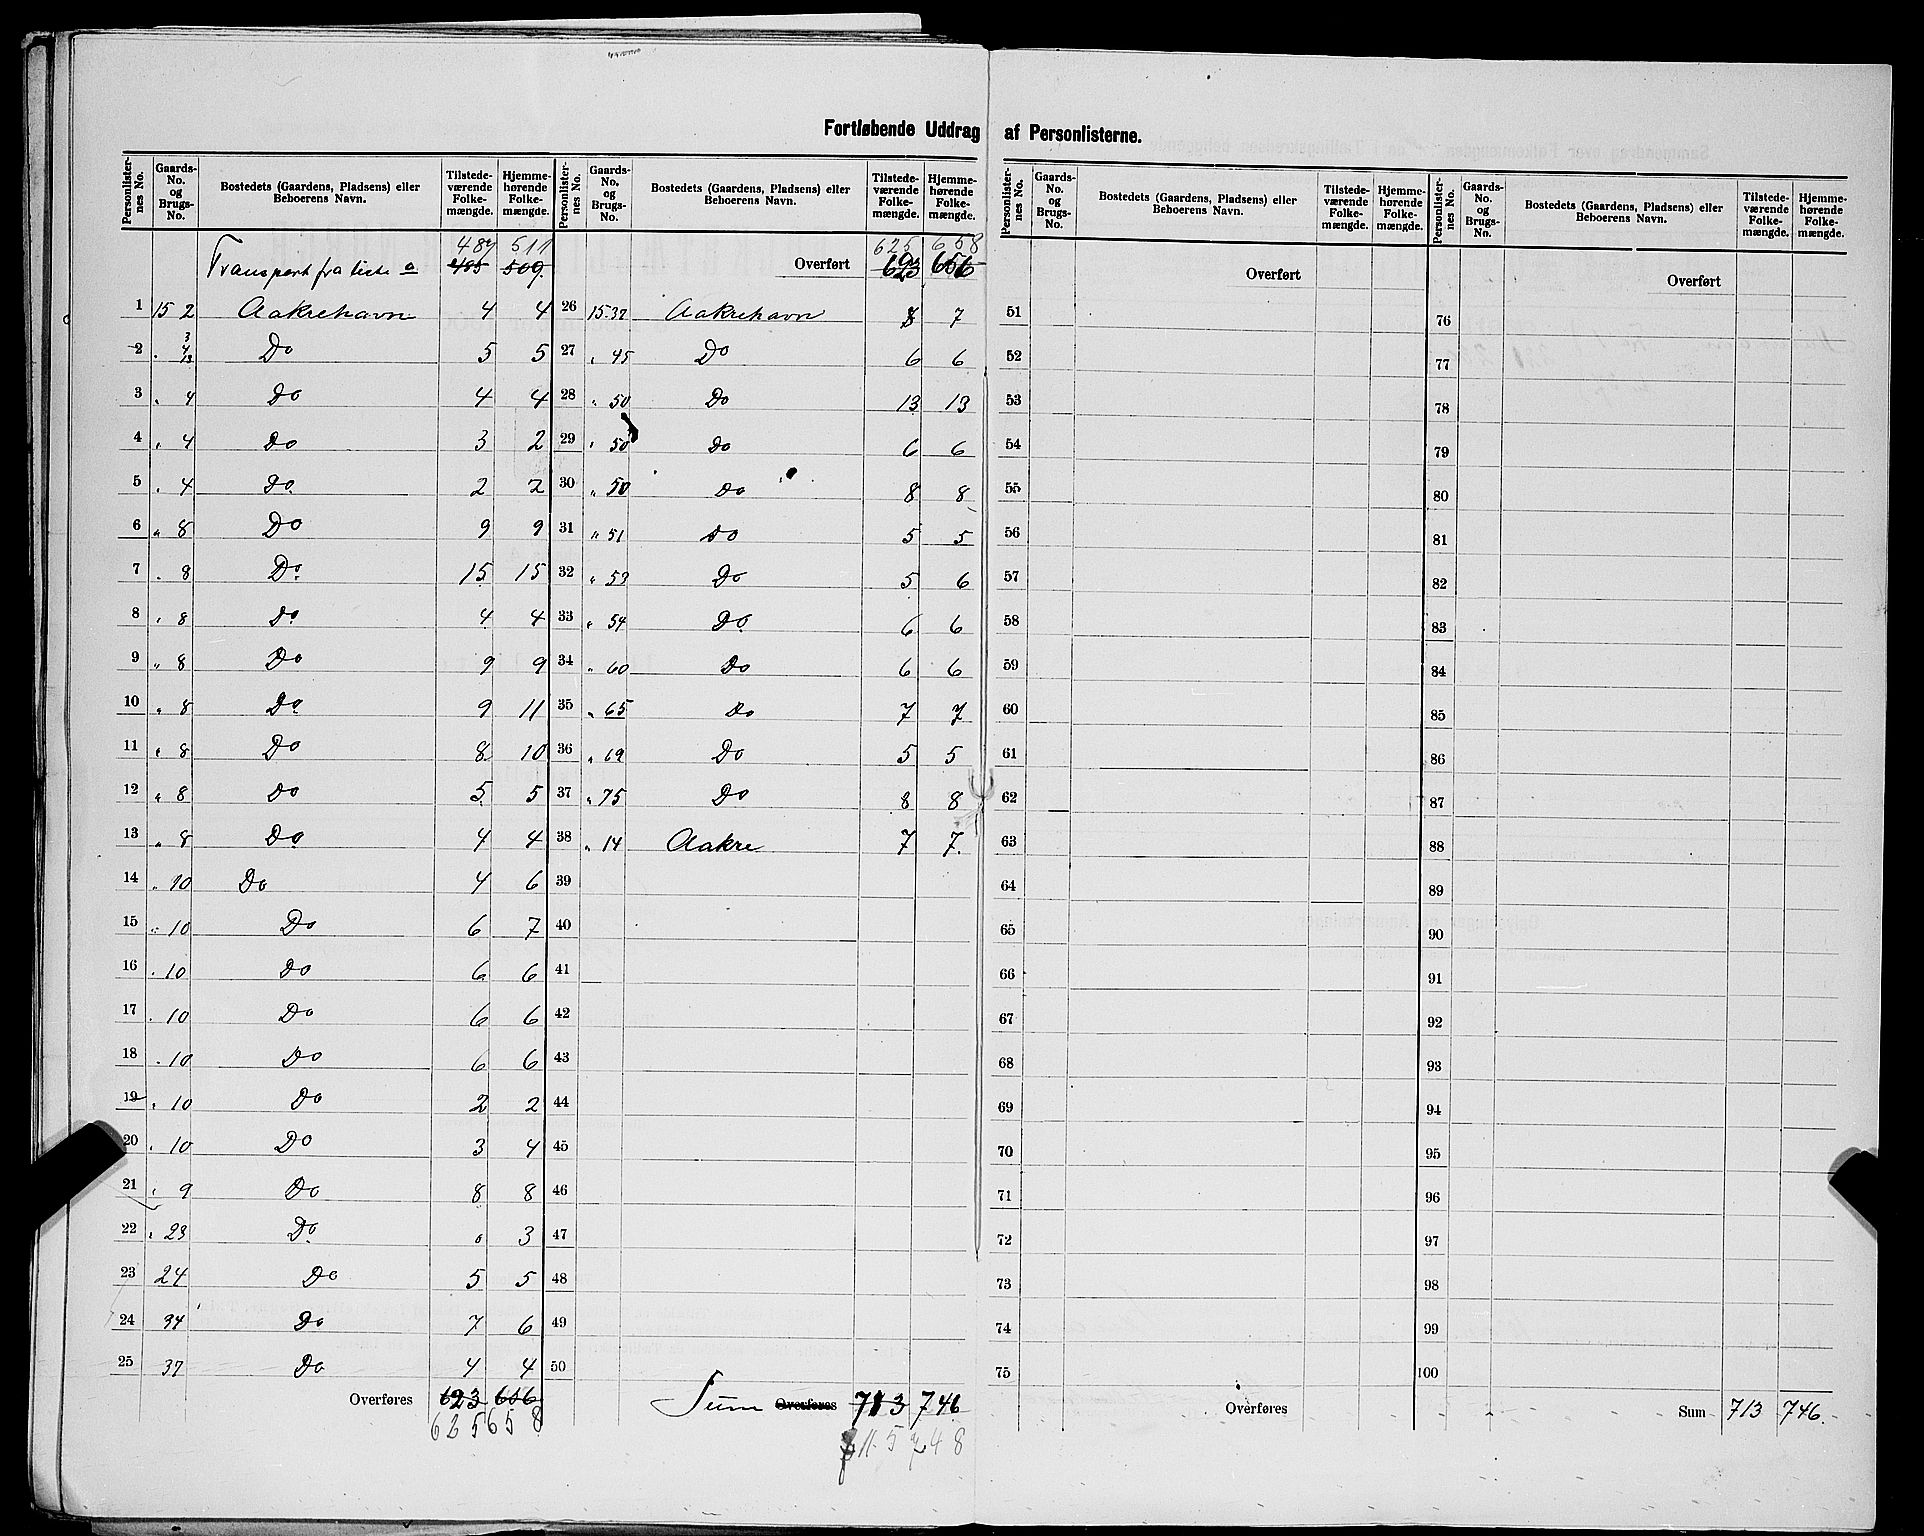 Fortløbende Uddrag af Personlisterne.
Personlister-nes No. | Gaards-No. og Brugs-No. | Bostedets (Gaardens, Pladsens) eller Beboerens Navn. | Tilstede-værende Folke-mængde. | Hjemme-hørende Folke-mængde.
487 511
Transport fra liste a 485 509.
1 15 2 Aakrehavn 4 4
2 " 3 4 13 Do 5 5
3 " 4 Do 4 4
4 " 4 Do 3 2
5 " 4 Do 2 2
6 " 8 Do 9 9
7 " 8 Do 15 15
8 " 8 Do 4 4
9 " 8 Do 9 9
10 " 8 Do 9 11
11 " 8 Do 8 10
12 " 8 Do 5 5
13 " 8 Do 4 4
14 " 10 Do 4 6
15 " 10 Do 6 7
16 " 10 Do 6 6
17 " 10 Do 6 6
18 " 10 Do 6 6
19 " 10 Do 2 2
20 " 10 Do 3 4
21 " 9 Do 8 8
22 " 23 Do 0 3
23 24 Do 5 5
24 34 Do 7 6
25 37 Do 4 4
Overføres 623 656
625 658
Personlister-nes No. | Gaards-No. og Brugs-No. | Bostedets (Gaardens, Pladsens) eller Beboerens Navn. | Tilstede-værende Folke-mængde. | Hjemme-hørende Folke-mængde.
625 658
Overført 623 656
26 15.37 Aakrehavn 8 7
27 " 45 Do 6 6
28 " 50 Do 13 13
29 " 50 Do 6 6
30 " 50 Do 8 8
31 " 51 Do 5 5
32 " 53 Do 5 6
33 " 54 Do 6 6
34 " 60 Do 6 6
35 " 65 Do 7 7
36 " 69 Do 5 5
37 " 75 Do 8 8
38 " 14 Aakre 7 7.
39
40
41
42
43
44
45
46
47
48
49
50
Sum Overføres 713 746
715 748
Personlister-nes No. | Gaards-No. og Brugs-No. | Bostedets (Gaardens, Pladsens) eller Beboerens Navn. | Tilstede-værende Folke-mængde. | Hjemme-hørende Folke-mængde.
Overført
51
52
53
54
55
56
57
58
59
60
61
62
63
64
65
66
67
68
69
70
71
72
73
74
75
Overføres
Personlister-nes No. | Gaards-No. og Brugs-No. | Bostedets (Gaardens, Pladsens) eller Beboerens Navn. | Tilstede-værende Folke-mængde. | Hjemme-hørende Folke-mængde.
Overført
76
77
78
79
80
81
82
83
84
85
86
87
88
89
90
91
92
93
94
95
96
97
98
99
100
Sum 713 746.